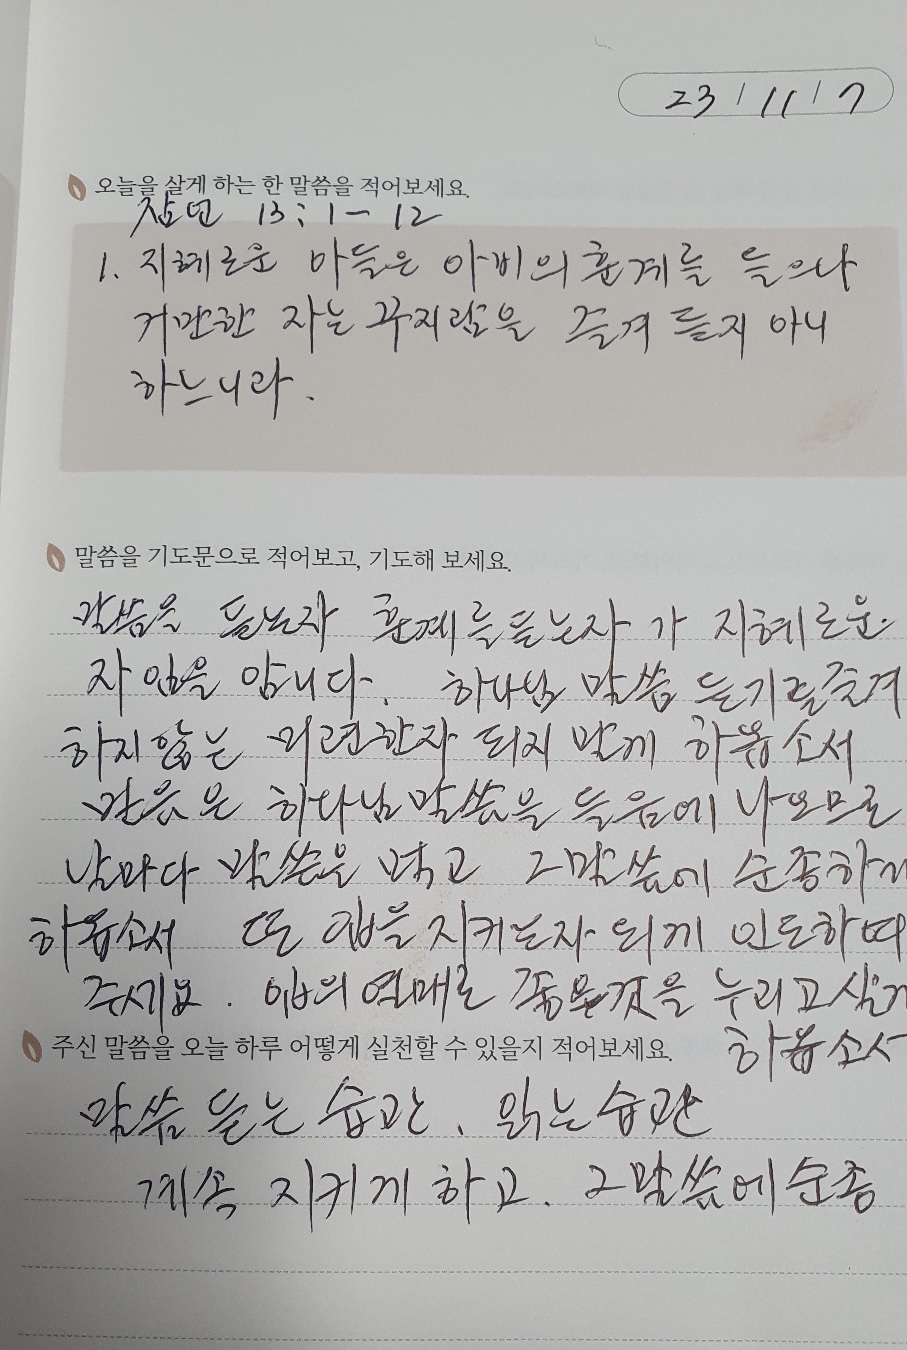 23/11/7
오늘을 살게 하는 한 말씀을 적어보세요.
잠언 13:1-12
1. 지혜로운 아들은 아비의 훈계를 들으나
거만한 자는 꾸지람을 즐겨 듣지 아니
하느니라.
말씀을 기도문으로 적어보고, 기도해 보세요.
말씀을 듣는자 훈계를듣는자가 지혜로운
자 임을 압니다. 하나님 말씀 듣기를즐겨
하지않는 미련한자 되지 말게 하옵소서
믿음은 하나님말씀을 들음에 나오므로
날마다 말씀을 먹고 그말씀에 순종하게
하옵소서 또 입을 지키는자 되게 인도하여
주세요. 입의 열매로 좋은것을 누리고살게
하옵소서
주신 말씀을 오늘 하루 어떻게 실천할 수 있을지 적어보세요.
말씀 듣는 습관. 읽는습관
계속 지키게 하고. 그말씀에순종